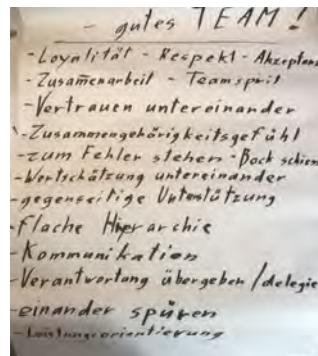 - gutes TEAM!
- Loyalität - Respekt - Akzeptanz
- Zusam̄enarbeit - Teamsprit
- Vertrauen untereinander
- Zusammengehörigkeitsgefühl
- zum Fehler stehen - Bock schien
- Wertschätzung untereinander
- gegenseitige Unterstützung
- flache Hierarchie
- Kommunikation
- Verantwortung übergeben / delegie
- einander spüren
- Leistungsorientierung